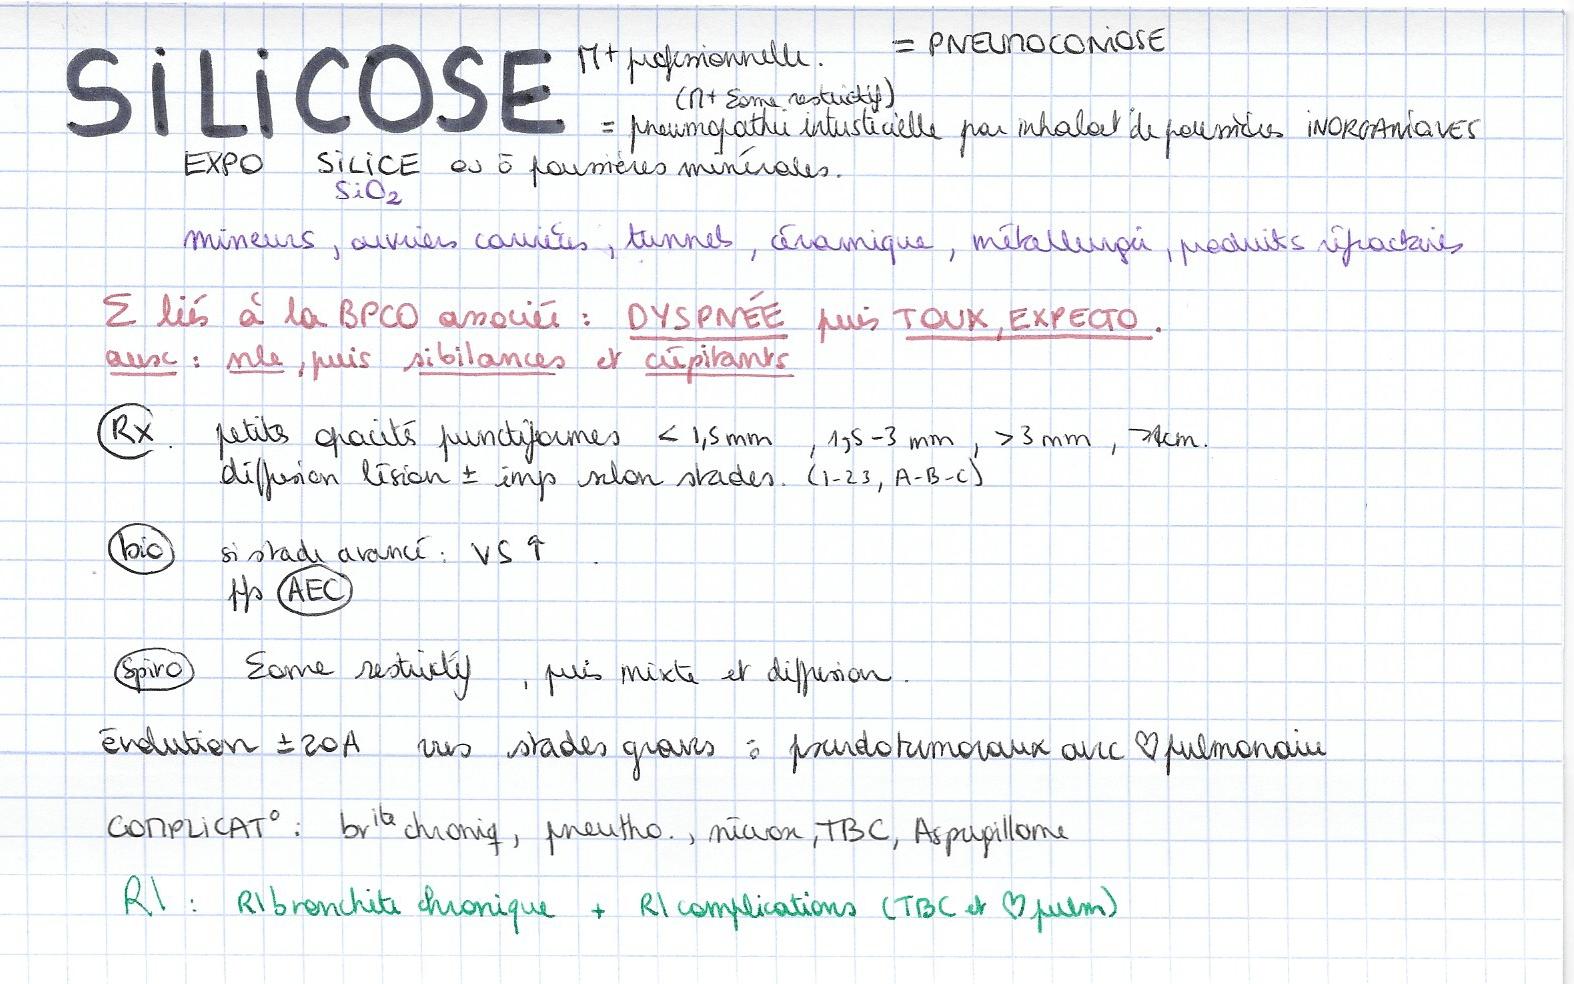 SILICOSE M+ professionnelle. = PNEUMOCONIOSE
(M+ Σome restrictif)
= pneumopathie interstitielle par inhalat° de poussières INORGANIQUES
EXPO SILICE ou à poussières minérales.
SiO2
mineurs, ouvriers carrières, tunnels, céramique, métallurgie, produits réfractaires
Σ liés à la BPCO associée : DYSPNÉE puis TOUX, EXPECTO.
ausc : nle, puis sibilances et crépitants
Rx. petits opacités punctiformes < 1,5 mm, 1,5-3 mm, > 3 mm, >1cm.
diffusion lésion ± imp selon stades. (1-2-3, A-B-C)
bio si stade avancé : VS ↑
pfs AEC
Spiro Σome restrictif, puis mixte et diffusion.
Évolution ± 20A vers stades graves : pseudotumoraux avec ♡ pulmonaire
COMPLICAT° : brite chroniq, pneutho., nécrose, TBC, Aspergillome
R\ : R\ bronchite chronique + R\ complications (TBC et ♡ pulm)